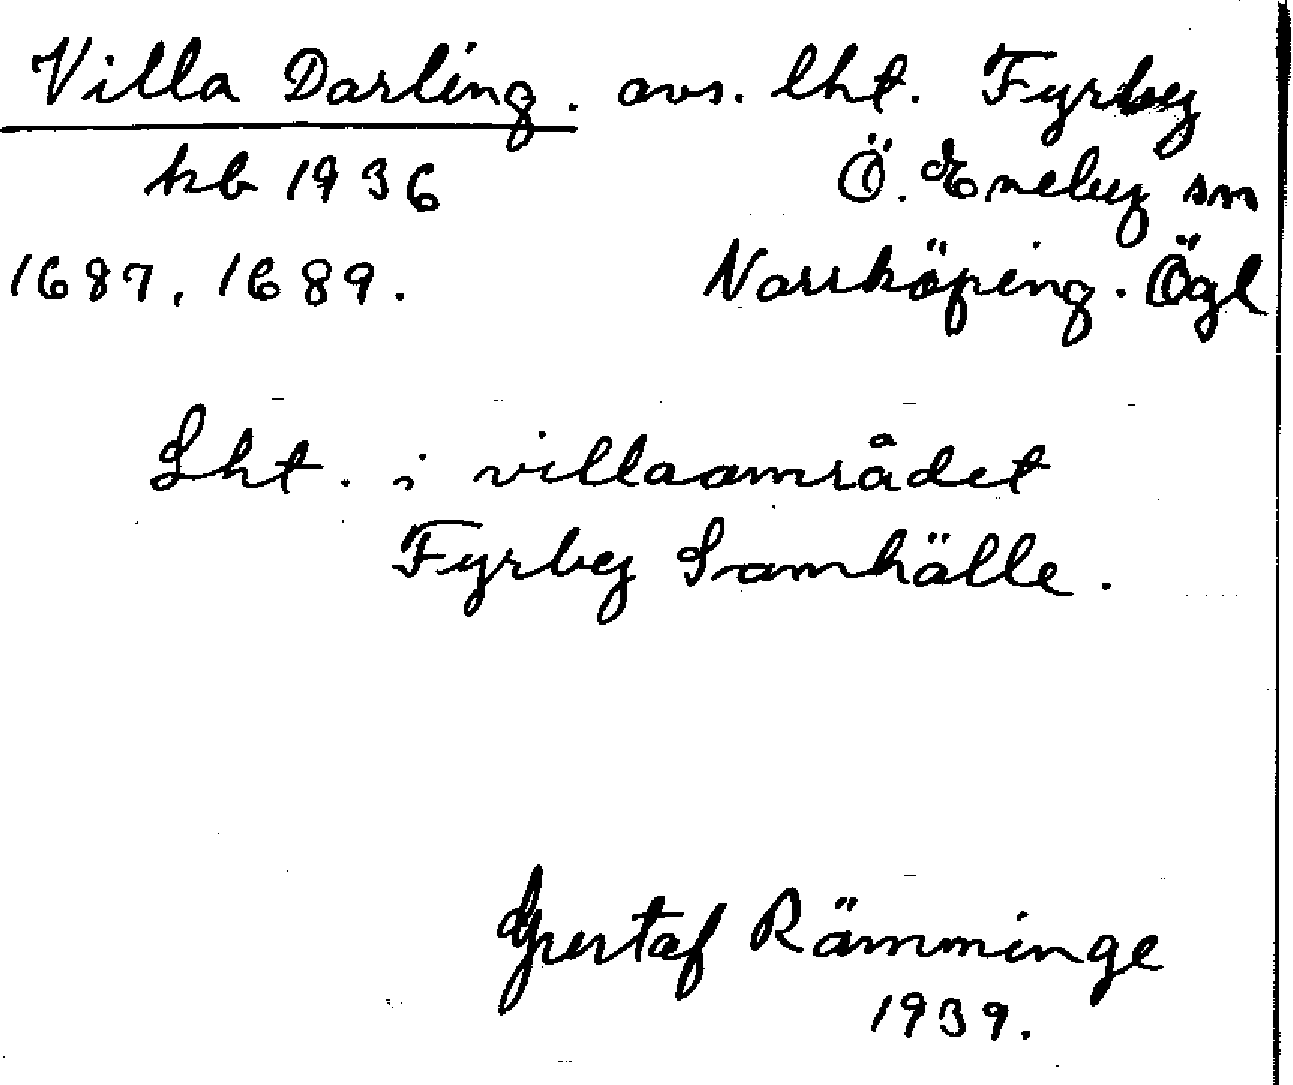 Villa Darling. avs. lht. Fyrby
kb 1936 Ö. Eneby sn
1687, 1689. Norrköping. Ögl
Lht. i villaområdet
Fyrby Samhälle.
Gustaf Rämminge
1939.